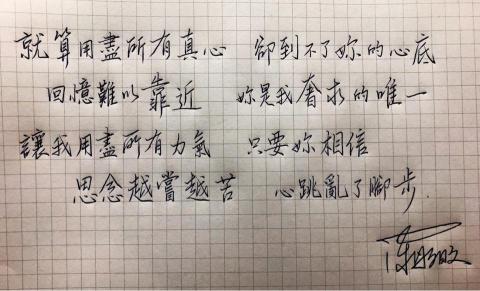 就算用盡所有真心 卻到不了妳的心底
回憶難以靠近 妳是我奢求的唯一
讓我用盡所有力氣 只要妳相信
思念越嘗越苦 心跳亂了腳步